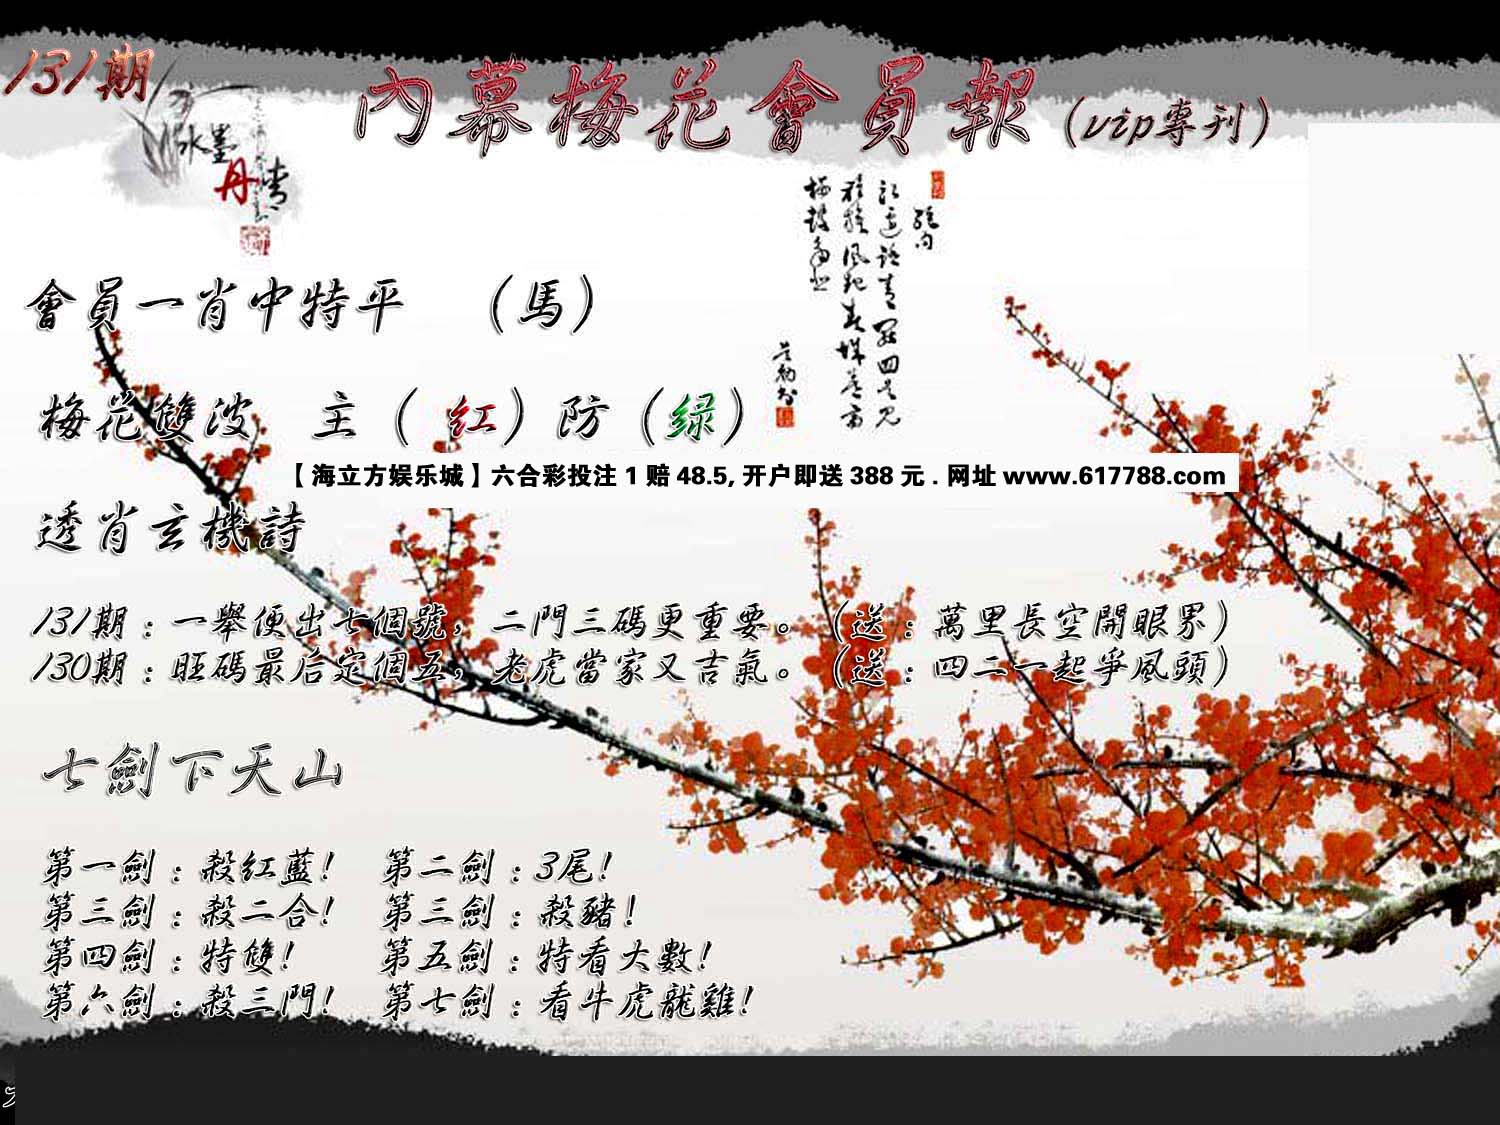 131期
內幕梅花會員報(vip專刊)
水墨
丹青
絕句
會員一肖中特平 (馬)
梅花雙波 主(紅)防(绿)
【海立方娱乐城】六合彩投注1赔48.5,开户即送388元.网址www.617788.com
透肖玄機詩
131期:一舉便出七個號,二門三碼更重要。(送:萬里長空開眼界)
130期:旺碼最后定個五,老虎當家又吉氣。(送:四二一起爭風頭)
七劍下天山
第一劍:殺红藍! 第二劍:3尾!
第三劍:殺二合! 第三劍:殺豬!
第四劍:特雙! 第五劍:特看大數!
第六劍:殺三門! 第七劍:看牛虎龍雞!